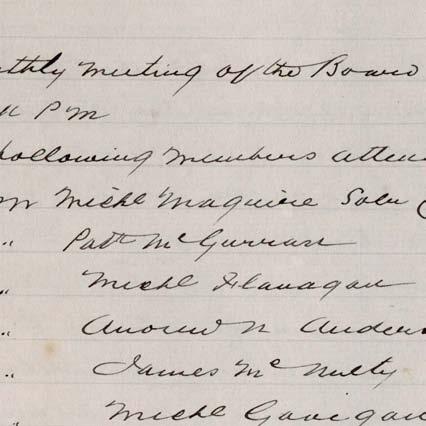 thly meeting of the Board
P M
following members atten
Michl Maguire Solr
" Patk McGurran
" Michl Flanagan
" Andrew N Anders
" James McNulty
" Michl Gavigan